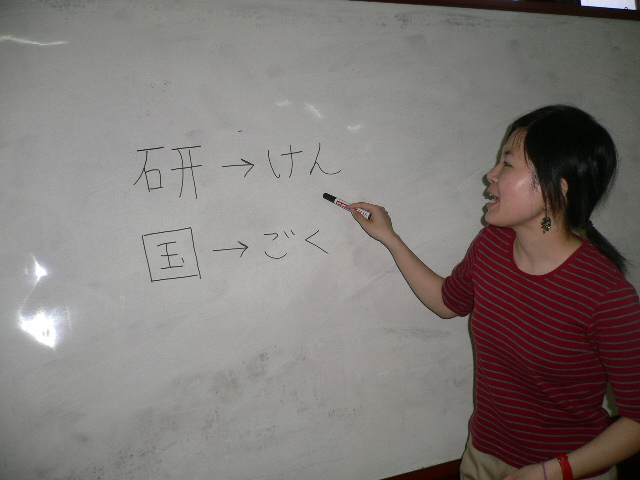 研→けん
国→ごく